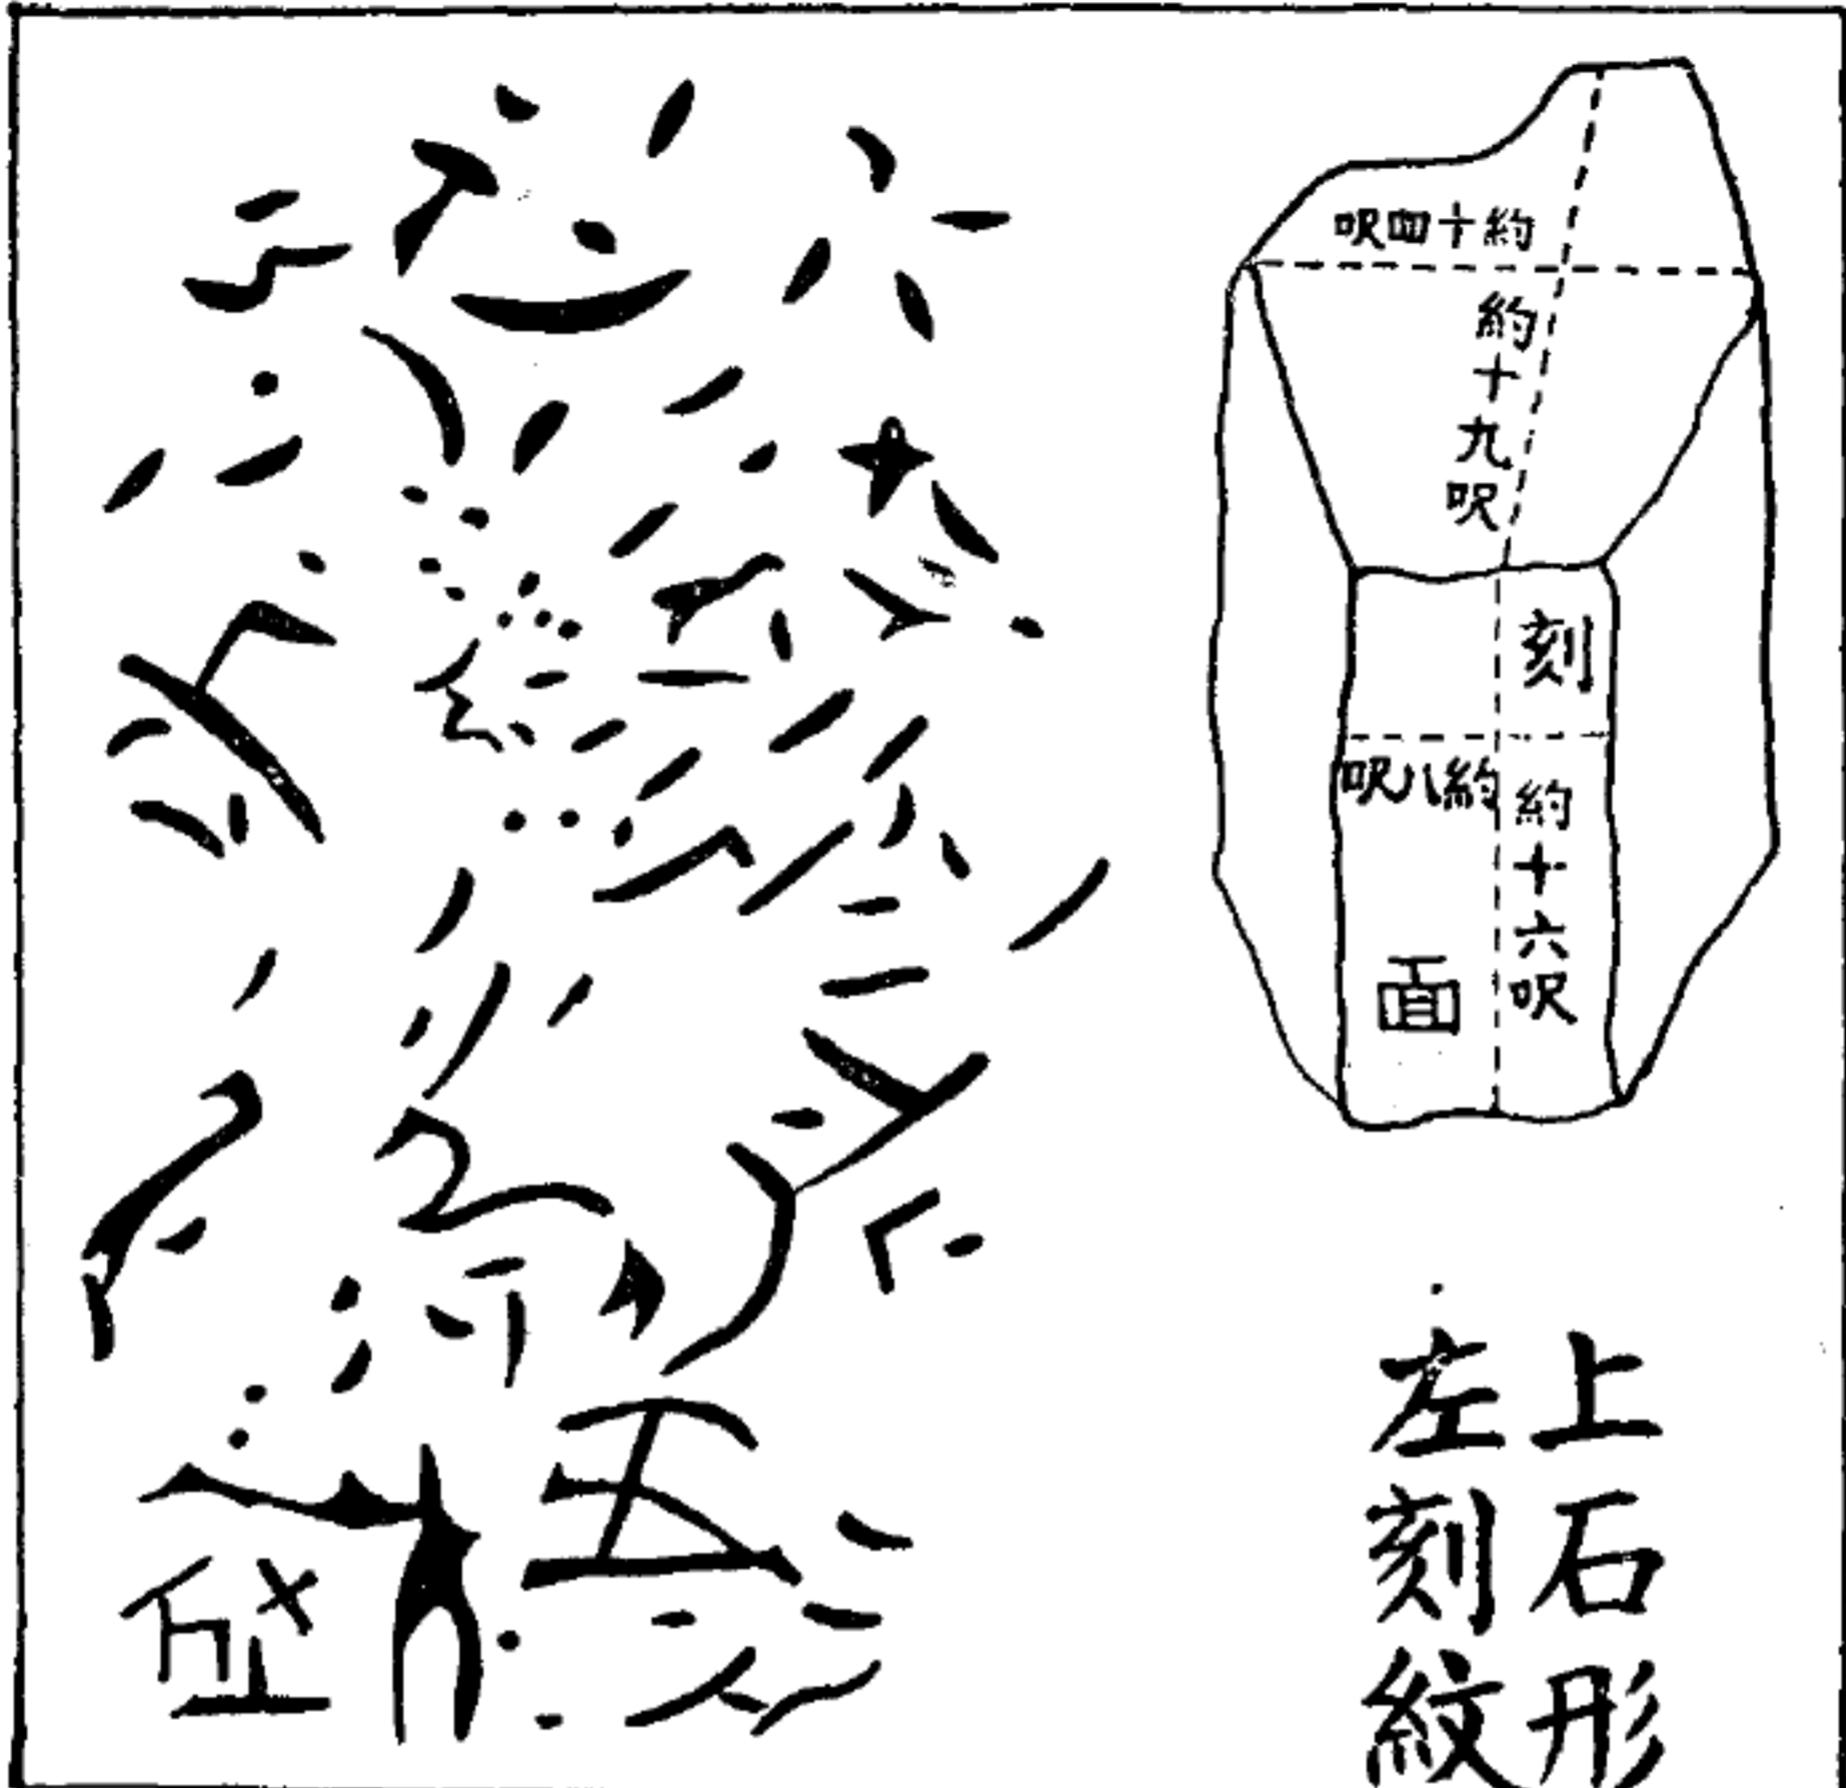 約十四呎
約十九呎
刻
約八呎
約十六呎
面
上石形
左刻紋